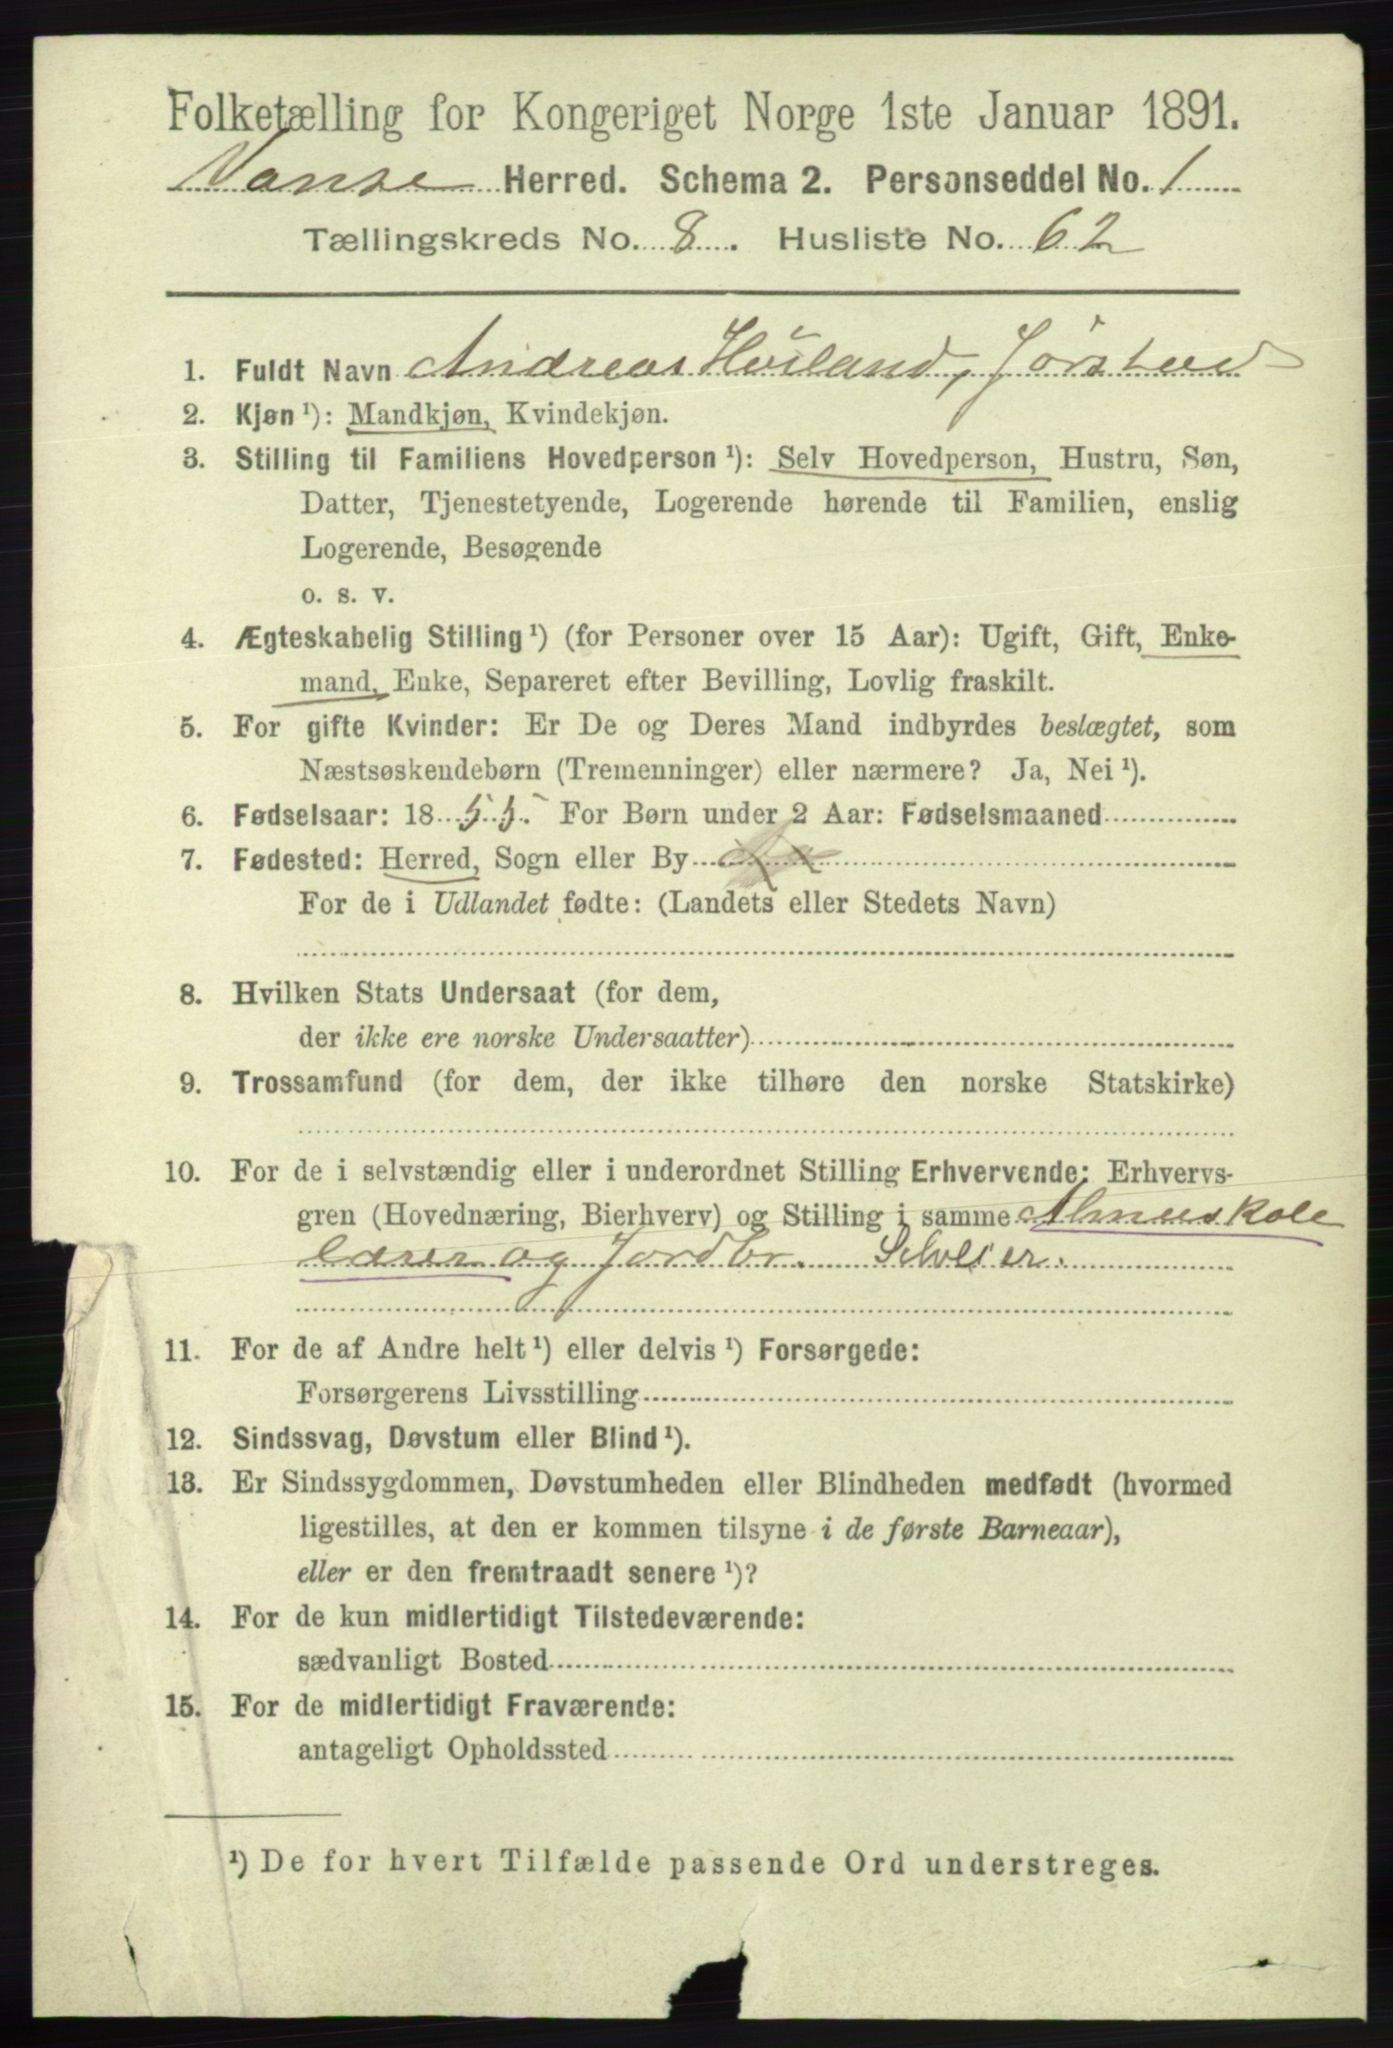 Folketælling for Kongeriget Norge 1ste Januar 1891.
Vanse Herred. Schema 2. Personseddel No. 1
Tællingskreds No. 8. Husliste No. 62
1. Fuldt Navn Andreas Høiland, Jørstad
2. Kjøn ¹): Mandkjøn, Kvindekjøn.
3. Stilling til Familiens Hovedperson ¹): Selv Hovedperson, Hustru, Søn,
Datter, Tjenestetyende, Logerende hørende til Familien, enslig
Logerende, Besøgende
o. s. v.
4. Ægteskabelig Stilling ¹) (for Personer over 15 Aar): Ugift, Gift, Enke-
mand, Enke, Separeret efter Bevilling, Lovlig fraskilt.
5. For gifte Kvinder: Er De og Deres Mand indbyrdes beslægtet, som
Næstsøskendebørn (Tremenninger) eller nærmere? Ja, Nei ¹).
6. Fødselsaar: 1855. For Børn under 2 Aar: Fødselsmaaned
7. Fødested: Herred, Sogn eller By
For de i Udlandet fødte: (Landets eller Stedets Navn)
8. Hvilken Stats Undersaat (for dem,
der ikke ere norske Undersaatter)
9. Trossamfund (for dem, der ikke tilhøre den norske Statskirke)
10. For de i selvstændig eller i underordnet Stilling Erhvervende: Erhvervs-
gren (Hovednæring, Bierhverv) og Stilling i samme Almueskole
lærer og Jordbr. Selveier.
11. For de af Andre helt ¹) eller delvis ¹) Forsørgede:
Forsørgerens Livsstilling
12. Sindssvag, Døvstum eller Blind ¹).
13. Er Sindssygdommen, Døvstumheden eller Blindheden medfødt (hvormed
ligestilles, at den er kommen tilsyne i de første Barneaar),
eller er den fremtraadt senere ¹)?
14. For de kun midlertidigt Tilstedeværende:
sædvanligt Bosted
15. For de midlertidigt Fraværende:
antageligt Opholdssted
¹) De for hvert Tilfælde passende Ord understreges.